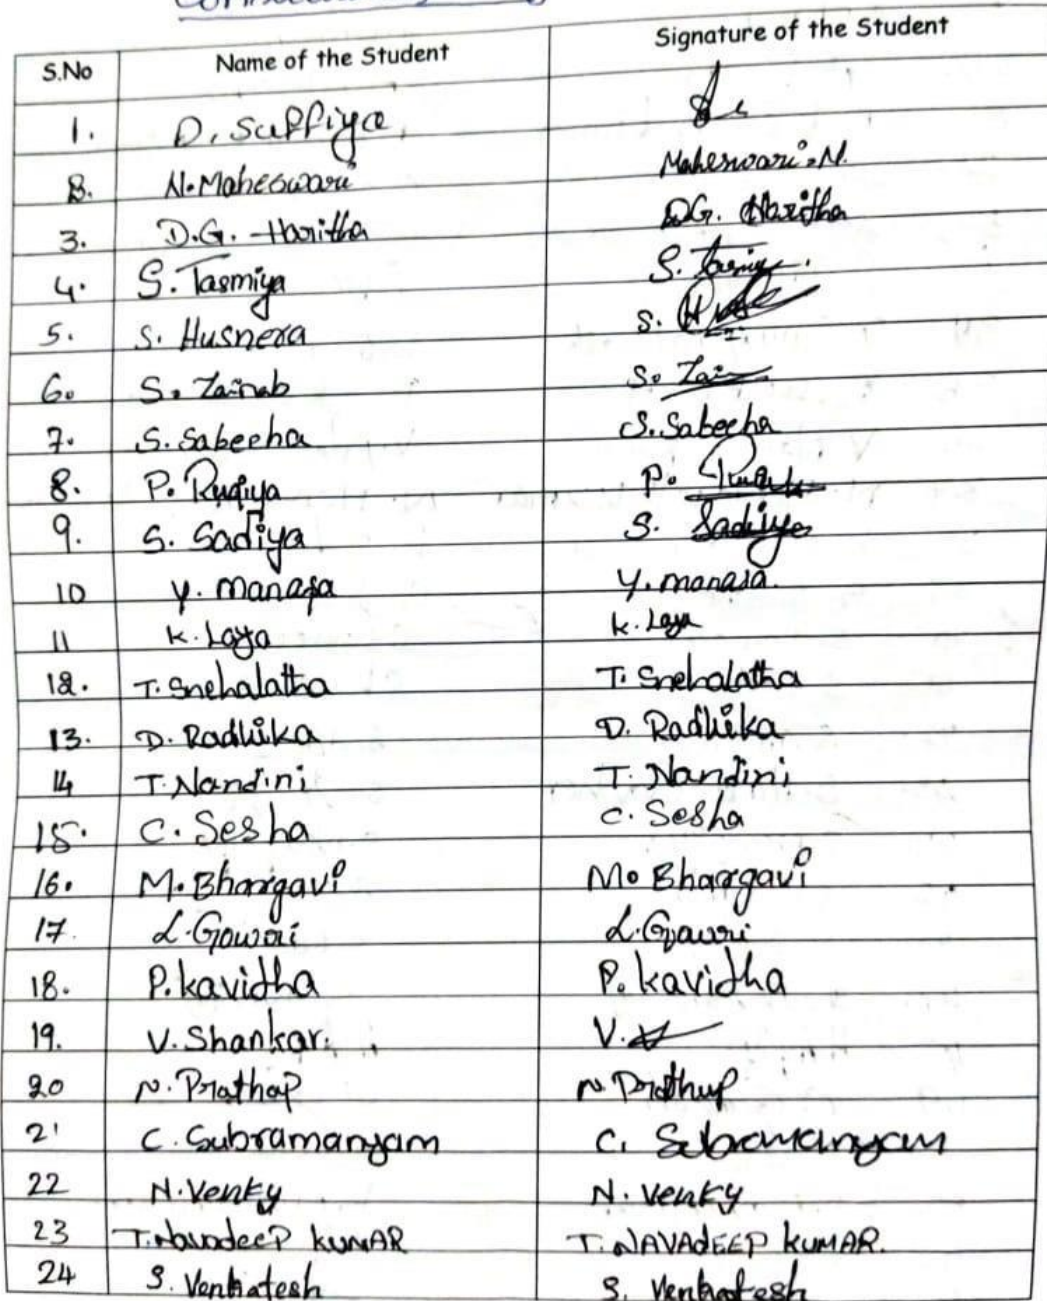 S.No Name of the Student Signature of the Student
1. D. Suffiya
2. N. Maheswari Maheswari. N.
3. D.G. Haritha DG. Haritha
4. S. Tasmiya S. Tasmiya.
5. S. Husnera S.
6. S. Zainab S. Zai
7. S. Sabeeha S. Sabeeha
8. P. Ruqiya P.
9. S. Sadiya S. Sadiya
10 Y. Manasa Y. manasa.
11 K. Laya K. Laya
12. T. Snehalatha T. Snehalatha
13. D. Radhika D. Radhika
14 T. Nandini T. Nandini
15. C. Sesha C. Sesha
16. M. Bhargavi M. Bhargavi
17. L. Gowri L. Gowri
18. P. kavidha P. kavidha
19. V. Shankar. V.
20 N. Prathap N Prathap
21 C. Subramanyam C. Subramanyam
22 N. Venky N. Venky.
23 T. NavadeeP KUMAR T. NAVAdEEP KUMAR.
24 S. Venkatesh S. Venkatesh